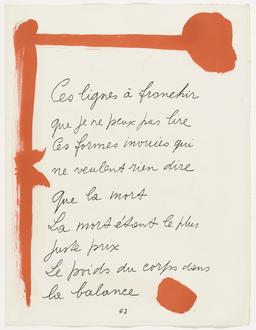 Ces lignes à franchir
que je ne peux pas lire
Ces formes inouïes qui
ne veulent rien dire
Que la mort
La mort étant le plus
juste prix
Le poids du corps dans
la balance
63